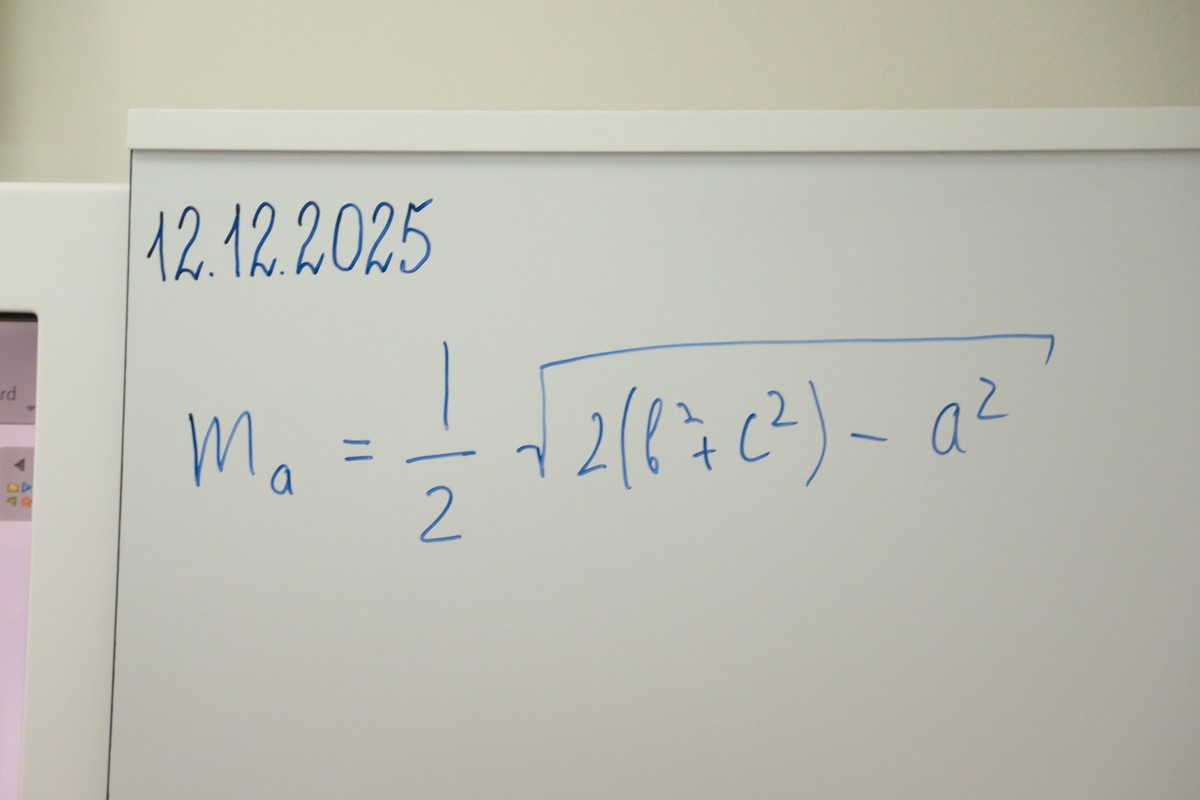 12.12.2025
mₐ = 1/2 √(2(b² + c²) − a²)
rd